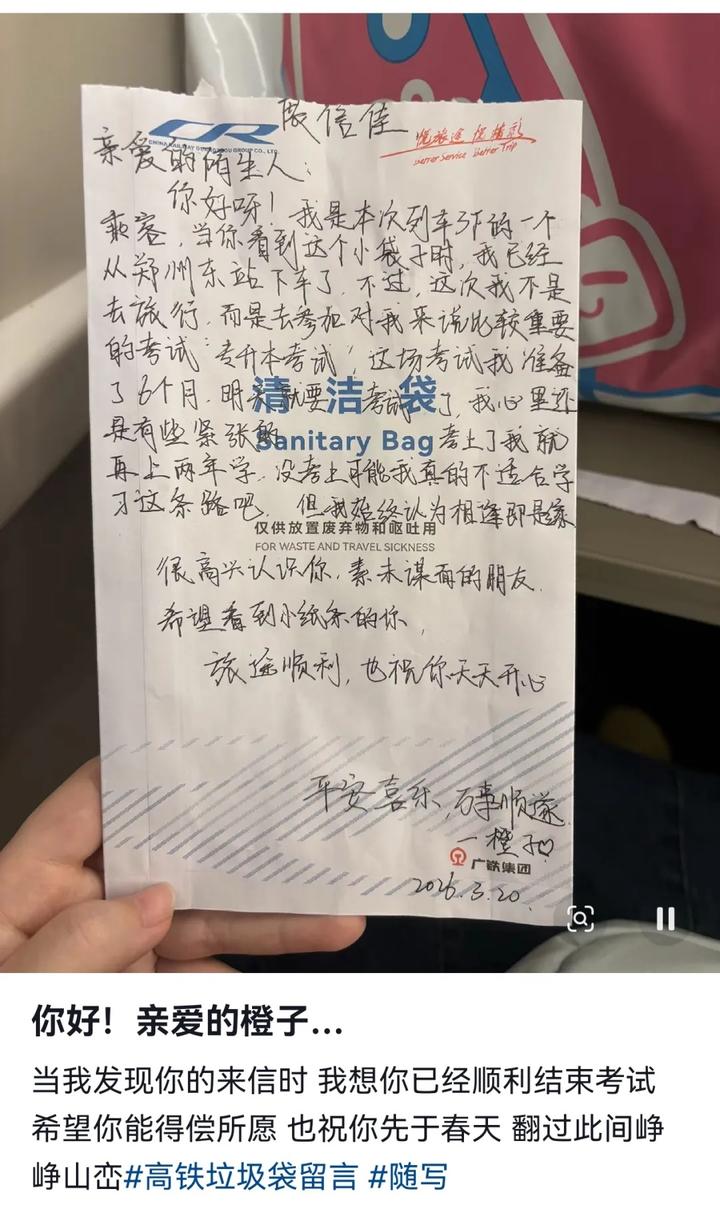 展信佳
CHINA RAILWAY GUANGZHOU GROUP CO., LTD.
悦旅途 悦精彩
Better Service Better Trip
亲爱的陌生人：
你好呀！我是本次列车3F的一个
乘客，当你看到这个小袋子时，我已经
从郑州东站下车了，不过，这次我不是
去旅行，而是去参加对我来说比较重要
的考试“专升本考试”，这场考试我准备
了6个月，明天就要考试了，我心里还
是有些紧张的 考上了我就
再上两年学，没考上可能我真的不适合学
习这条路吧，但我始终认为相逢即是缘
清洁袋
Sanitary Bag
仅供放置废弃物和呕吐用
FOR WASTE AND TRAVEL SICKNESS
很高兴认识你，素未谋面的朋友，
希望看到小纸条的你，
旅途顺利，也祝你天天开心
平安喜乐，万事顺遂
一橙子♡
广铁集团
2026.3.20.
你好！亲爱的橙子...
当我发现你的来信时 我想你已经顺利结束考试
希望你能得偿所愿 也祝你先于春天 翻过此间峥
峥山峦#高铁垃圾袋留言 #随写